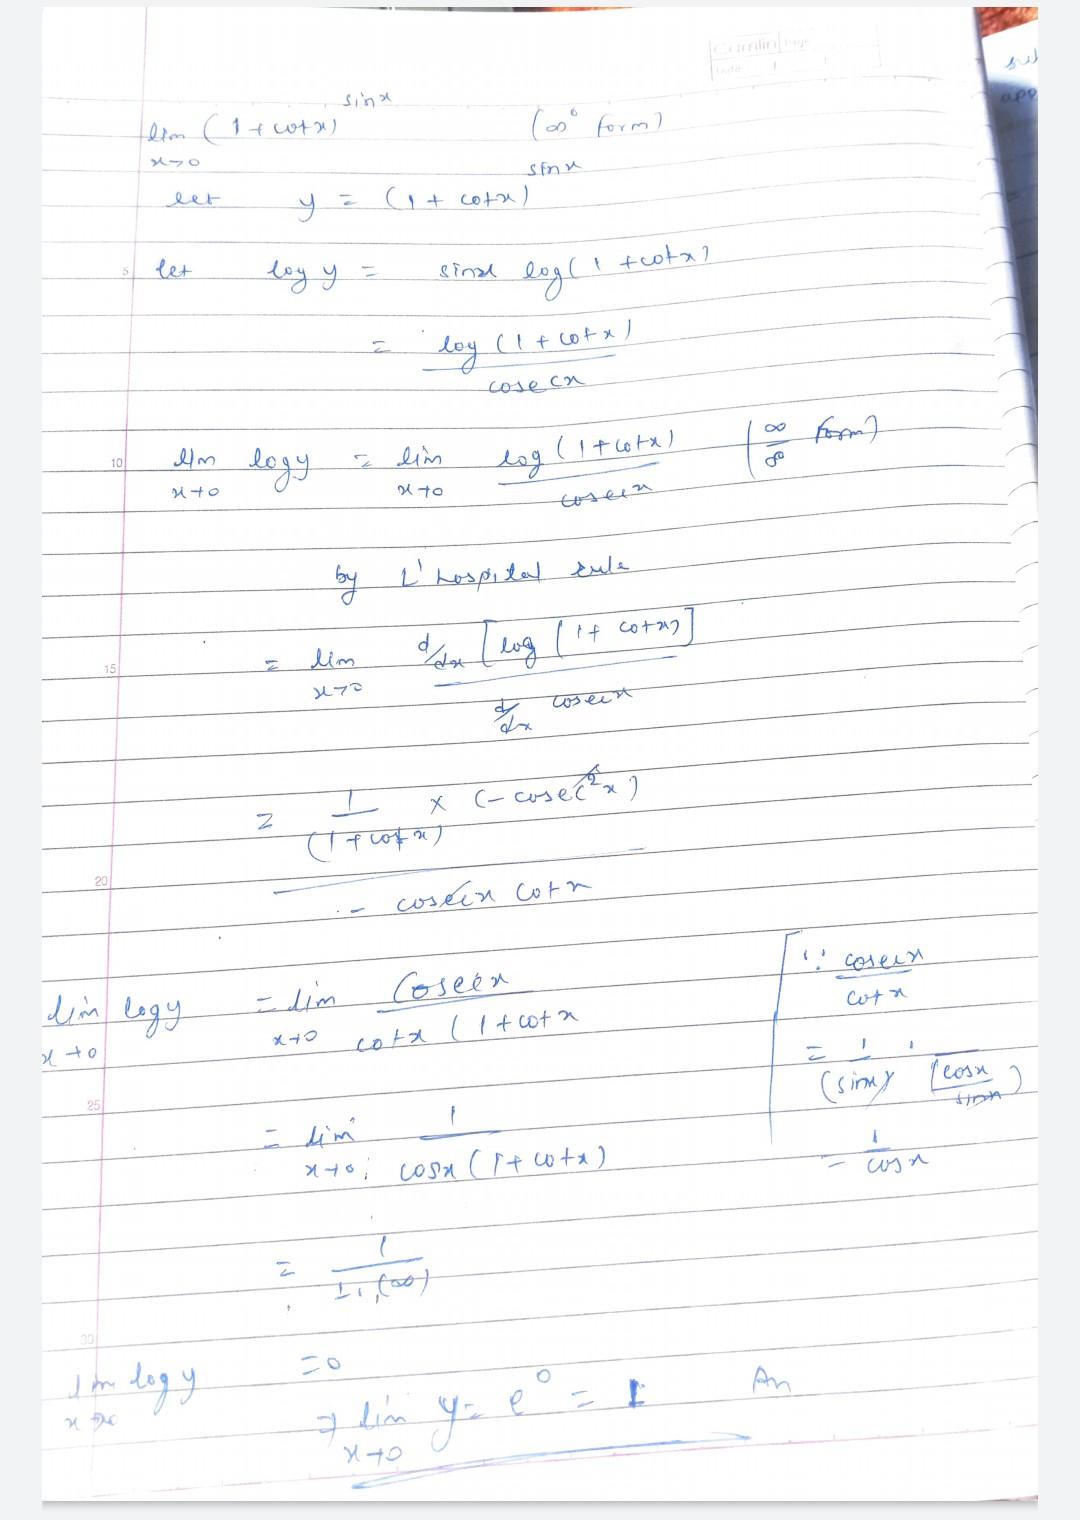 Camlin Page
Date / /
lim (1 + cotx)^sinx (∞° form)
x→0
let y = (1 + cotx)^sinx
5 let log y = sinx log(1 + cotx)
= log (1 + cotx)
cosecx
10 lim logy = lim log (1+cotx) (∞/∞ form)
x→0 x→0 cosecx
by L' hospital rule
15 = lim d/dx [log (1+ cotx)]
x→0 d/dx cosecx
= 1 × (-cosec²x)
(1+cotx)
20
- cosecx cotx
lim logy = lim Cosecx
x→0 x→0 cotx (1+cotx
∵ cosecx
cotx
= 1 .
(sinx) (cosx
sinx)
= 1
cosx
25 = lim 1
x→0 cosx (1+cotx)
= 1
1.(∞)
30
lim logy = 0
⇒ lim y = e^0 = 1 An
x→0